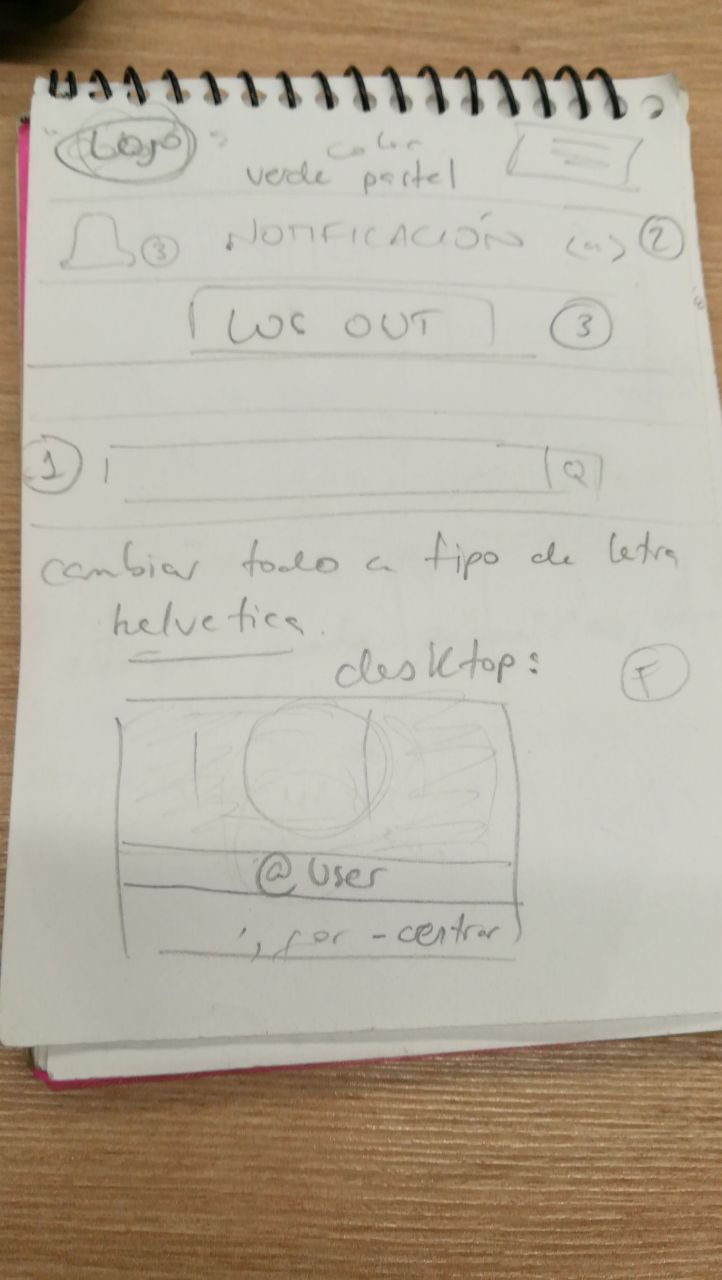 "Logo" color
verde pastel
3 NOTIFICACIÓN (n) 2
LOG OUT 3
1
cambiar todo a tipo de letra
helvetica.
desktop: F
@User
- centrar